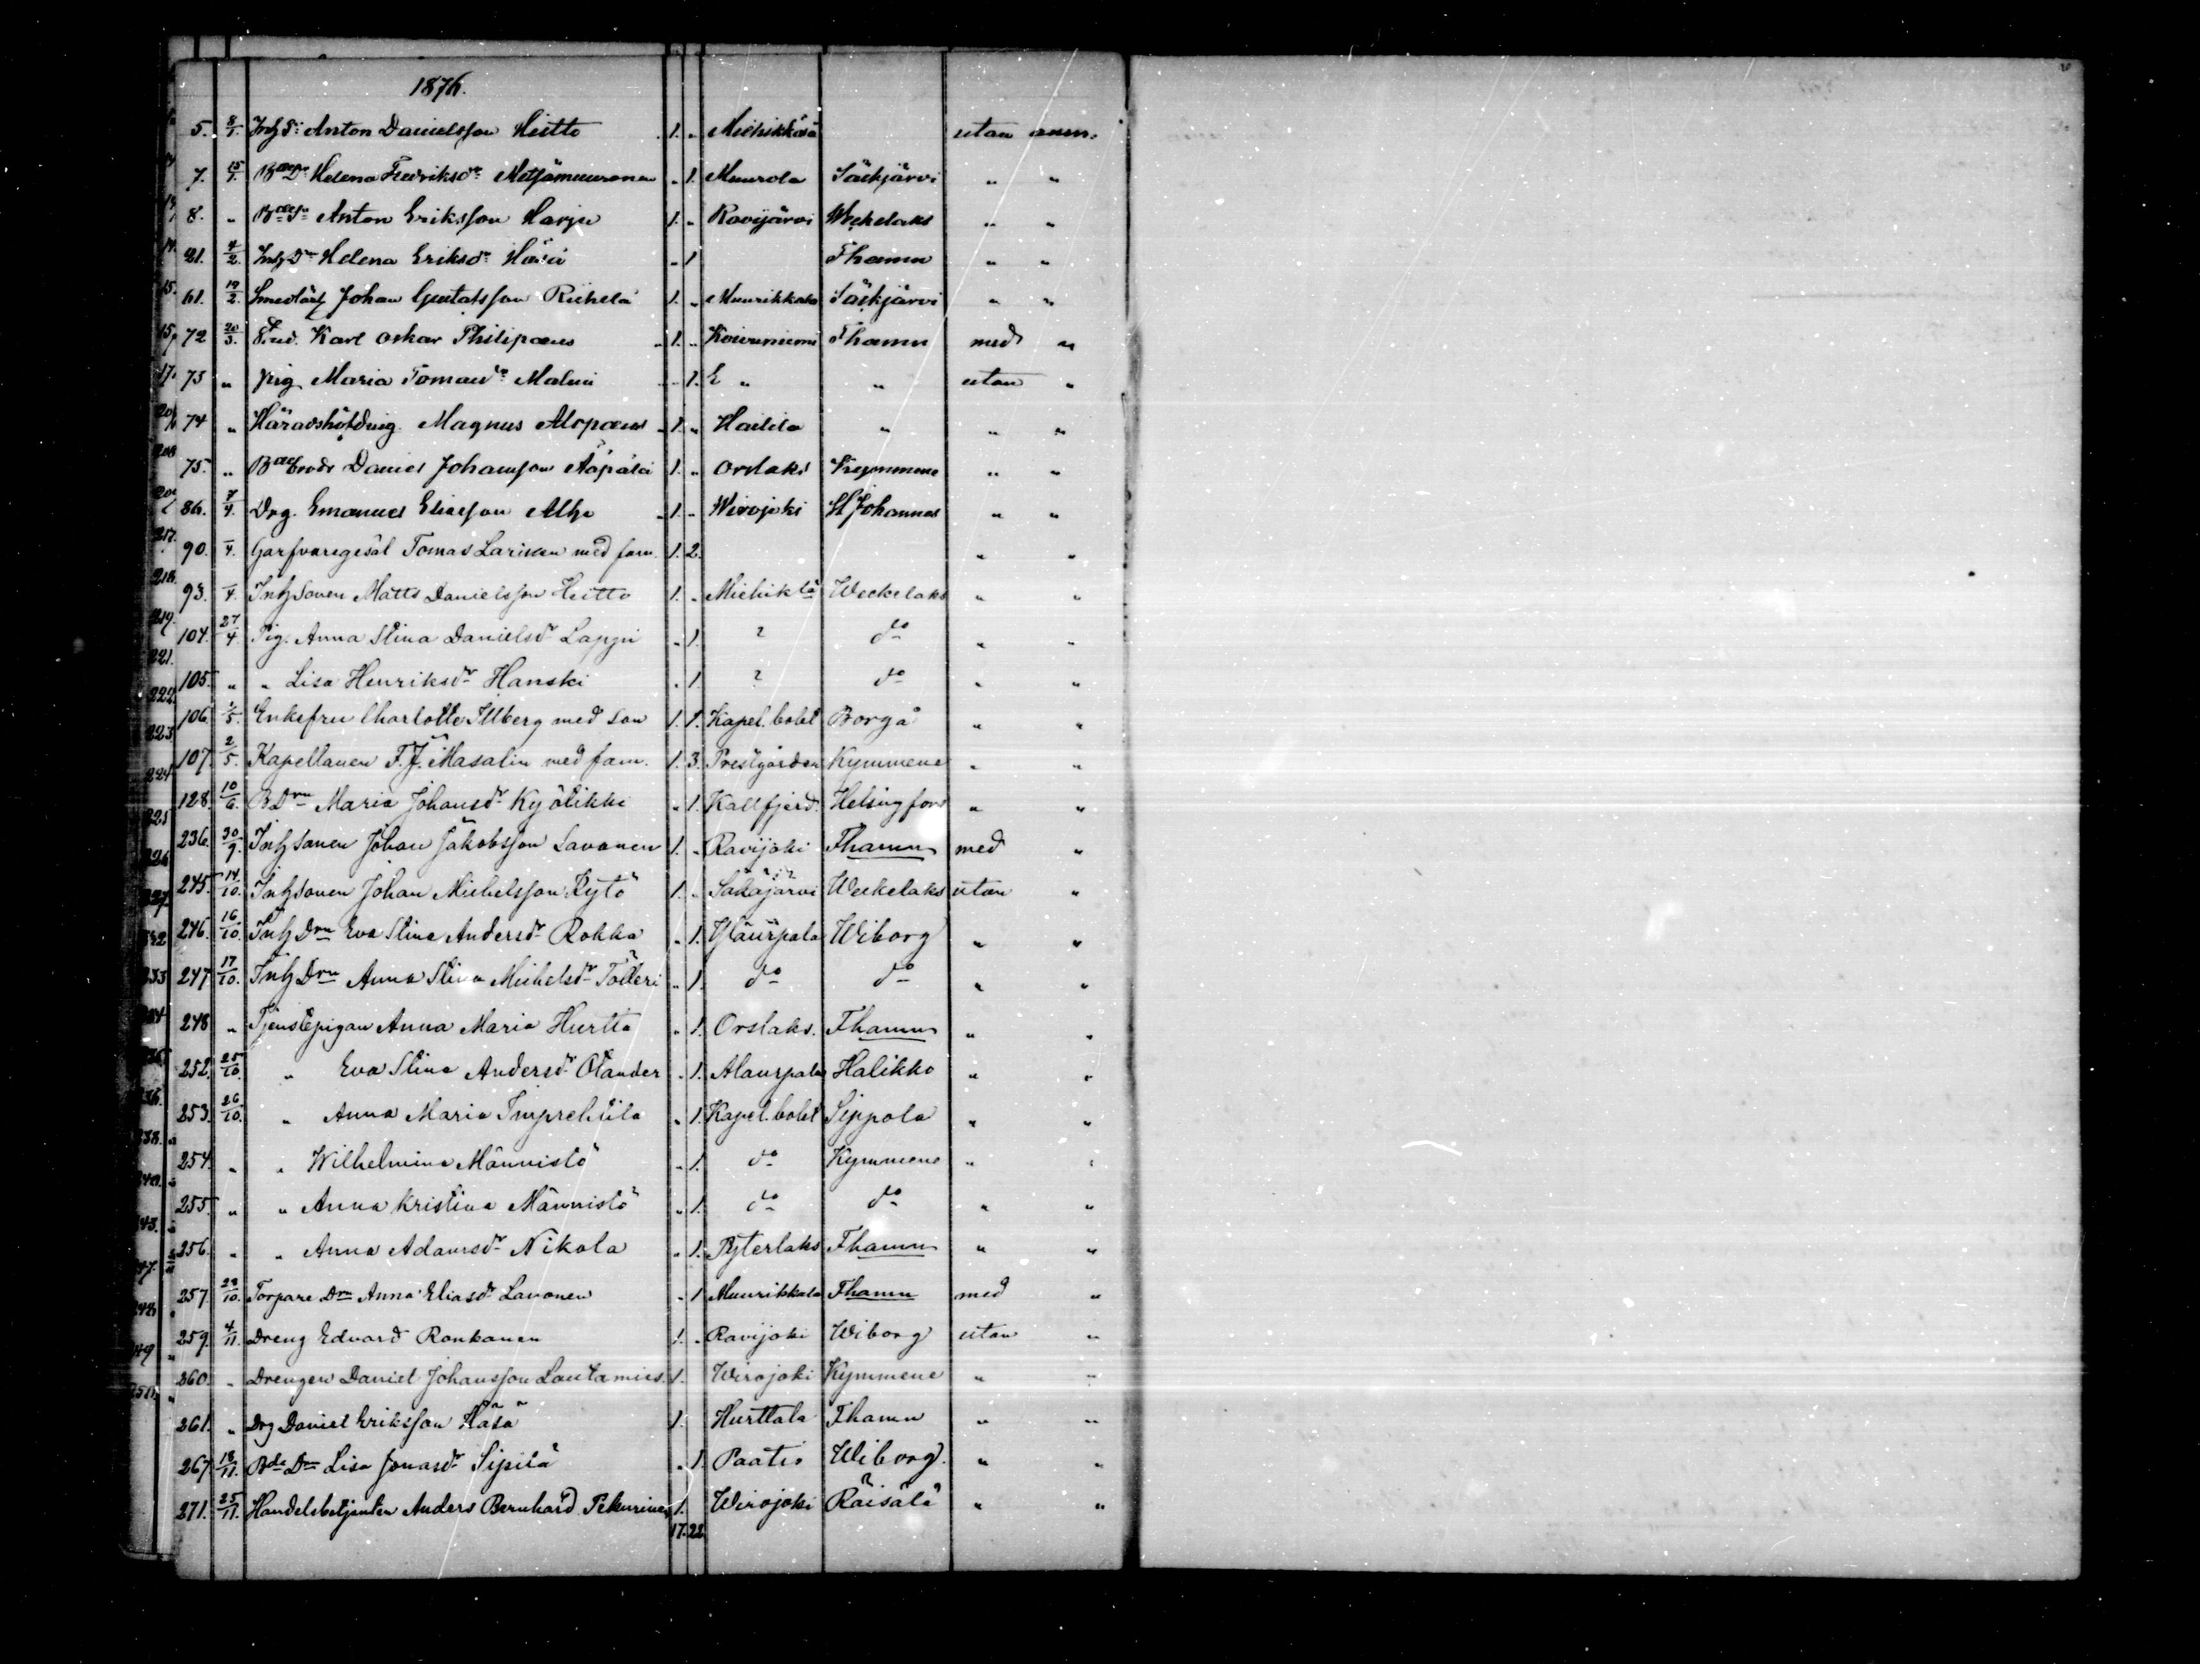 1876.
5. 8/1. Inh S: Anton Danielsson Heitto 1. „ Miehikkälä utan anm:
7. 15/1. Helena Fredriksdr Metsämuuronen „ 1. Muurola Säckjärvi „ „
8. „ Anton Eriksson Harju 1. „ Ravijärvi Weckelaks „ „
21. 4/2. Inh Dr Helena Eriksdr Häsä „ 1 Fhamn „ „
61. 19/2. Johan Gustafsson Riihelä 1. „ Muurikkala Säckjärvi „ „
72 20/3. Stud. Karl Oskar Philipæus „ 1. „ Koivuniemi Fhamn med „
73 „ pig Maria Tomasdr Malmi „ 1. „ „ utan „
74 „ Häradshöfding Magnus Alopæus „ 1. „ Hailila „ „ „
75. „ Daniel Johansson 1. „ Orslaks Kymmene „ „
86. 7/4. Drg. Emanuel Eliasson Alho „ 1. „ Wirojoki St Johannes „ „
90. –/4. Garfvaregesäl Tomas Larikka med fam. 1. 2. „ „
93. –/4. Inh Sonen Matts Danielsson Heitto 1. „ Miehiklä Weckelaks „ „
104. 27/4 Pig. Anna Stina Danielsdr Lappi „ 1. ? do „ „
105. „ „ Lisa Henriksdr Hanski „ 1. ? do „ „
106. 1/5. Enkefru Charlotte Illberg med son 1. 1. Kapel. bolet Borgå „ „
107. 2/5. Kapellanen F. J. Masalin med fam. 1. 3. Prestgården Kymmene „ „
128. 10/6. B Drn Maria Johansdr Kyölikki „ 1. Kallfjerd. Helsingfors „ „
236. 30/9. Inh Sonen Johan Jakobsson Lavonen 1. „ Ravijoki Fhamn med „
245. 14/10. Inh Sonen Johan Michelsson Kytö 1. „ Säkäjärvi Weckelaks utan „
246. 16/10. Inh Drn Eva Stina Andersdr Rokka „ 1. Yläurpala Wiborg „ „
247 17/10. Inh Drn Anna Stina Michelsdr Tölleri „ 1. do do „ „
248 „ Tjenstepigan Anna Maria Hurtta „ 1. Orslaks. Fhamn „ „
252. 25/10. „ Eva Stina Andersdr Olander „ 1. Alaurpala Halikko „ „
253. 26/10. „ Anna Maria „ 1. Kapel. bolet Sippola „ „
254. „ „ Wilhelmina Männistö „ 1. do Kymmene „ „
255. „ „ Anna Kristina Männistö „ 1. do do „ „
256. „ „ Anna Adamsdr Nikola „ 1. Pyterlaks Fhamn „ „
257. 28/10. Torpare Drn Anna Eliasdr Lavonen „ 1 Muurikkala Fhamn med „
259. 4/11. Dreng Edvard Ronkanen 1. „ Ravijoki Wiborg utan „
260. „ Drengen Daniel Johansson Lautamies. 1. Wirojoki Kymmene „ „
261. „ Drg Daniel Eriksson Häsä 1. Hurttala Fhamn „ „
267 18/11. Bde Drn Lisa Jonasdr Sipilä „ 1. Paatio Wiborg. „ „
271. 25/11. Handelsbetjenten Anders Bernhard Pekurinen 1. Wirojoki Räisälä „ „
17. 22